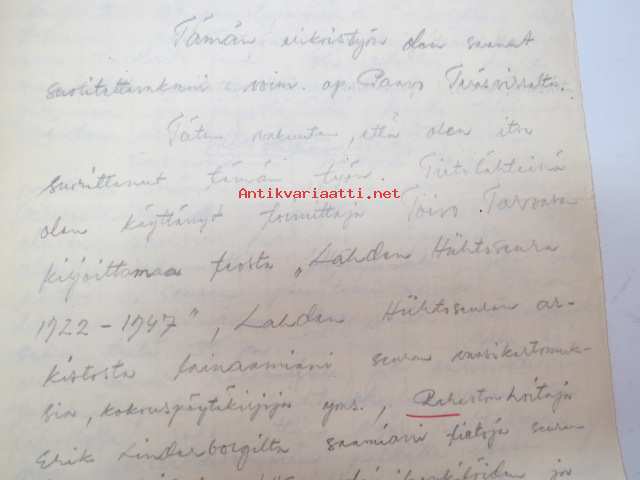 Tämän erikoistyön olen saanut
suoritettavakseni voim. op. Paavo Teräsvirralta.
Täten vakuutan, että olen itse
suorittanut tämän työn. Tietolähteinä
Antikvariaatti.net
olen käyttänyt toimittaja Toivo Tarvasen
kirjoittamaa teosta „Lahden Hiihtoseura
1922 - 1947”, Lahden Hiihtoseuran ar-
kistosta lainaamiani seuran vuosikertomuk-
sia, kokouspöytäkirjoja yms., Rahastonhoitaja
Erik Linderborgilta saamiani tietoja seuran
ja